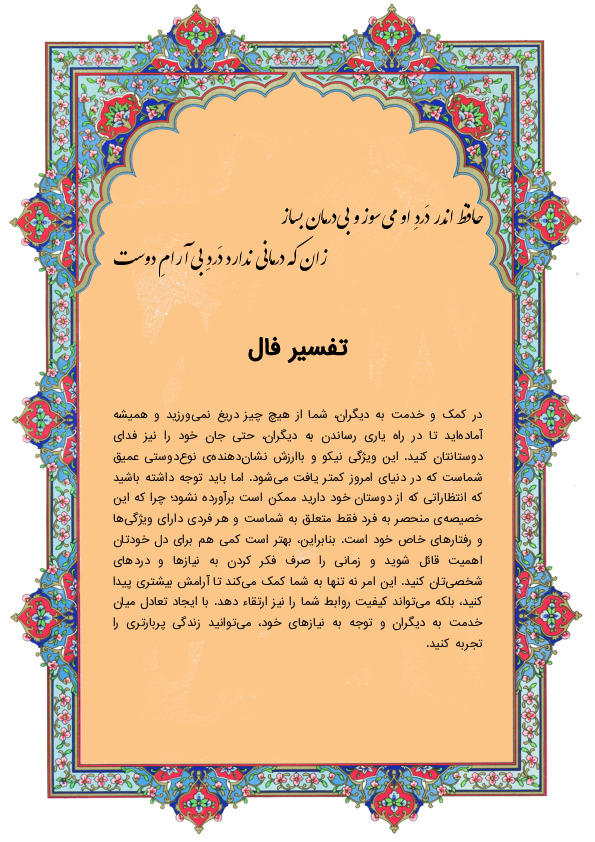 حافظ اندر دَردِ او می‌سوز و بی‌درمان بساز
زان که درمانی ندارد دَردِ بی‌آرامِ دوست
تفسیر فال
در کمک و خدمت به دیگران، شما از هیچ چیز دریغ نمی‌ورزید و همیشه
آماده‌اید تا در راه یاری رساندن به دیگران، حتی جان خود را نیز فدای
دوستانتان کنید. این ویژگی نیکو و باارزش نشان‌دهنده‌ی نوع‌دوستی عمیق
شماست که در دنیای امروز کمتر یافت می‌شود. اما باید توجه داشته باشید
که انتظاراتی که از دوستان خود دارید ممکن است برآورده نشود؛ چرا که این
خصیصه‌ی منحصر به فرد فقط متعلق به شماست و هر فردی دارای ویژگی‌ها
و رفتارهای خاص خود است. بنابراین، بهتر است کمی هم برای دل خودتان
اهمیت قائل شوید و زمانی را صرف فکر کردن به نیازها و دردهای
شخصی‌تان کنید. این امر نه تنها به شما کمک می‌کند تا آرامش بیشتری پیدا
کنید، بلکه می‌تواند کیفیت روابط شما را نیز ارتقاء دهد. با ایجاد تعادل میان
خدمت به دیگران و توجه به نیازهای خود، می‌توانید زندگی پربارتری را
تجربه کنید.